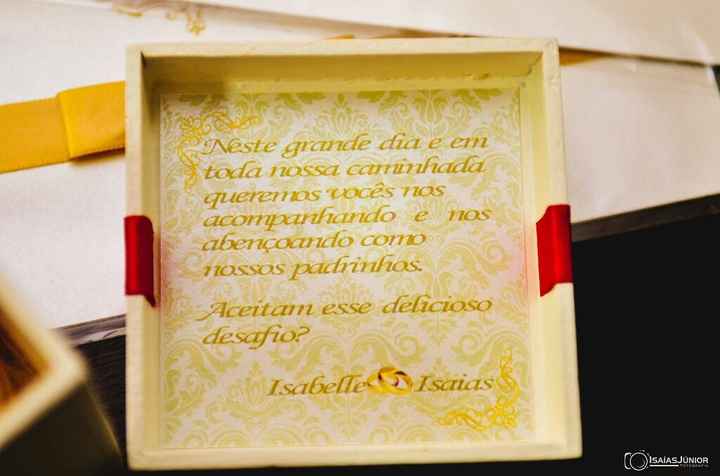 Neste grande dia e em
toda nossa caminhada
queremos vocês nos
acompanhando e nos
abençoando como
nossos padrinhos.
Aceitam esse delicioso
desafio?
Isabelle Isaias
ISAÍASJÚNIOR
FOTOGRAFIA